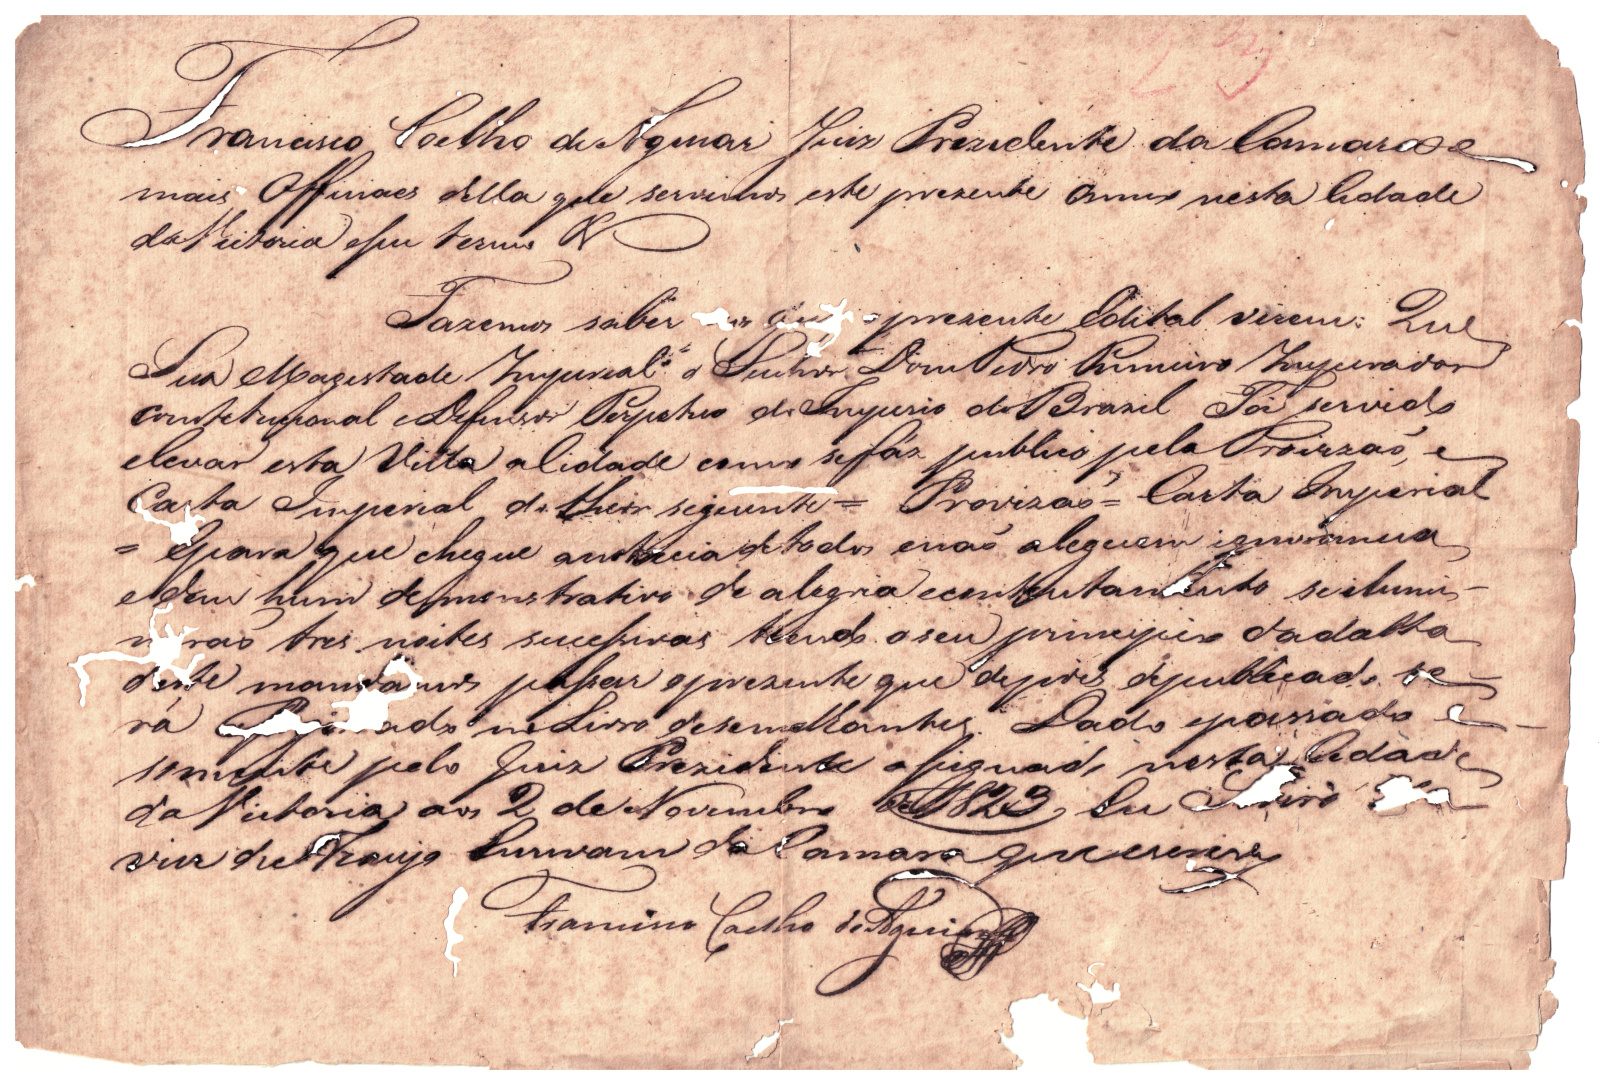 Francisco Coelho de Aguiar Juiz Prezidente da Camara e
mais Officiaes della que servimos este prezente Anno nesta Cidade
da Victoria eseu termo &
Fazemos saber aos que prezente Edital virem: Que
Sua Magestade Imperial o Senhor Dom Pedro Primeiro Imperador
constetucional e Defensor Perpetuo do Imperio do Brazil Foi servido
elevar esta Villa a Cidade como sefáz publico pela Provizaõ, e
Carta Imperial do theor seguinte = Provizaõ = Carta Imperial
= Epara que chegue anoticia detodos enaõ aleguem ignorancia
e hum demonstrativo de alegria econtentamento seilumi-
naraõ tres noites sucessivas tendo oseu principio dadatta
deste mandamos passar oprezente que depois depublicado se-
rá no Livro desemelhantes. Dado epassado e
somente pelo Juiz Prezidente assignado nesta Cidade
da Victoria aos 2 de Novembro de 1823, Eu
de Araujo Escrivam da Camara que escrevy
Francisco Coelho de Aguiar